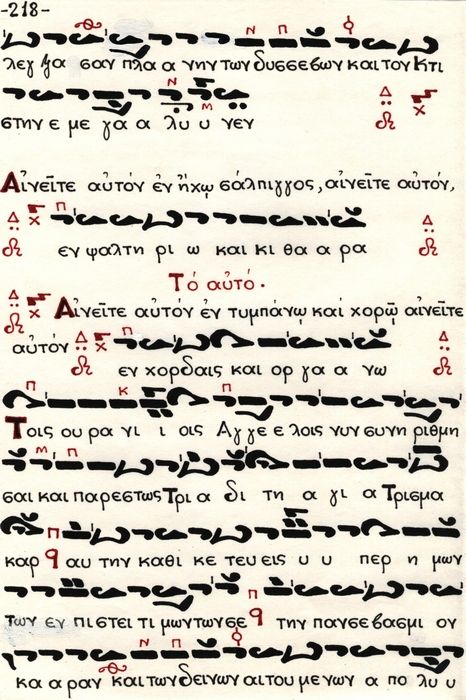 -218-
λεγ ξα σαν πλα α νην των δυσσεβων και τον Κτι
στην ε με γα α λυ υ νεν
Αἰνεῖτε αὐτόν ἐν ἤχῳ σάλπιγγος, αἰνεῖτε αὐτόν,
εν ψαλτη ρι ω και κι θα α ρα
Τό αὐτό.
Αἰνεῖτε αὐτόν ἐν τυμπάνῳ καί χορῷ αἰνεῖτε
αὐτόν
εν χορδαις και ορ γα α νω
Τοις ου ρα νι ι οις Αγγε ε λοις νυν συνη ριθμη
σαι και παρεστως Τρι α δι τη α γι α Τρισμα
καρ αυ την καθι κε τευ εις υ υ περ η μων
των εν πι στει τι μων των σε την πανσεβασμι ον
κα α ραν και των δεινων αι του με νων α πο λυ υ